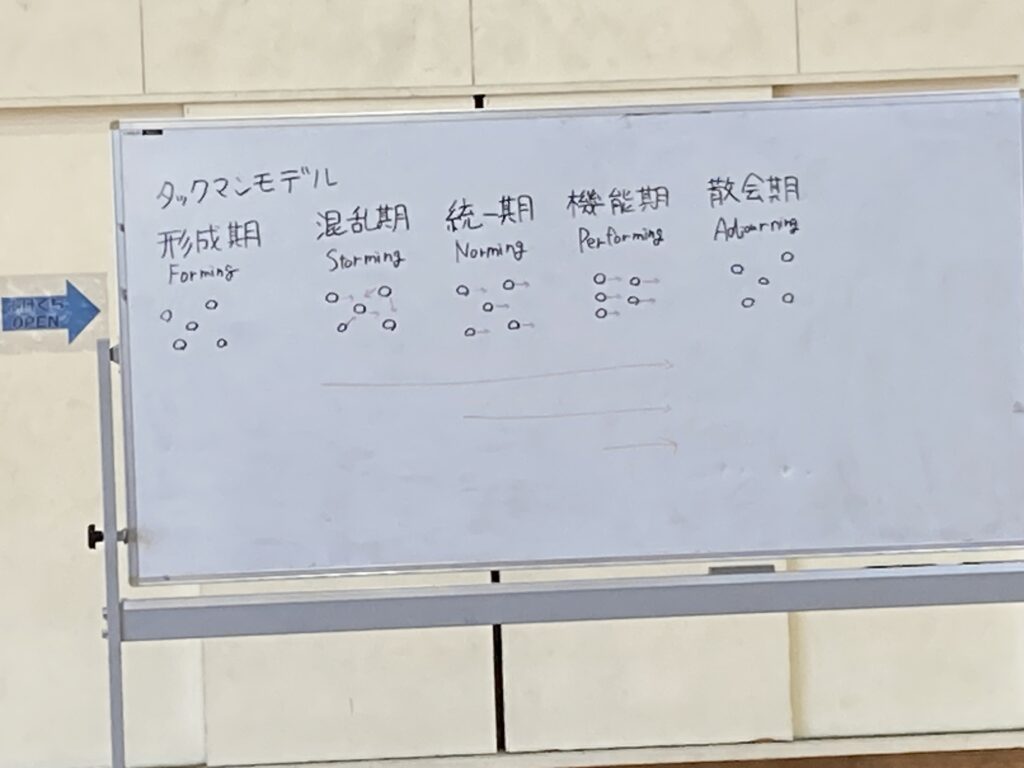 タックマンモデル
形成期
Forming
混乱期
Storming
統一期
Norming
機能期
Performing
散会期
Adjourning
OPEN